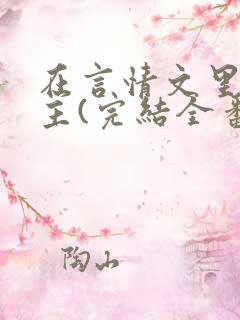 在言情文里
主(完結全番
陶山